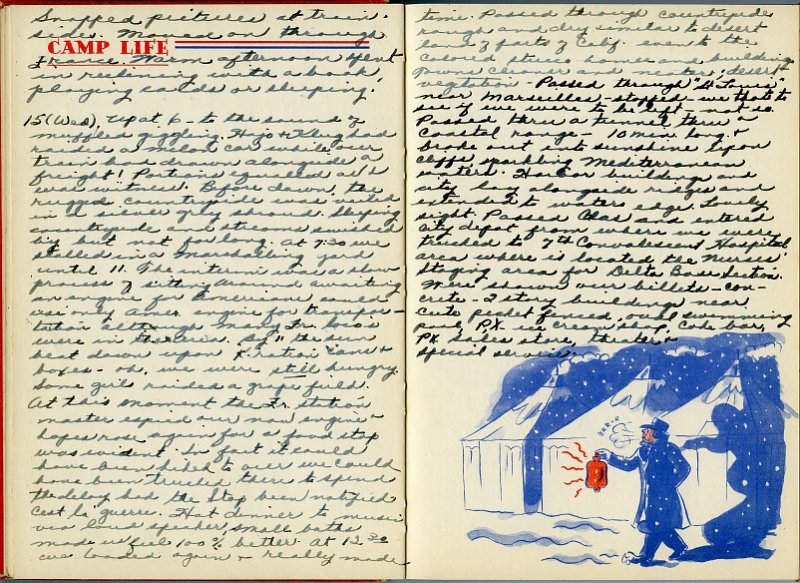 Snapped pictures at train-
side. Moved on through
CAMP LIFE
France. Warm afternoon spent
in reclining with a book,
playing cards or sleeping.
15 (Wed), Up at 6 - to the sound of
muffled giggling. Hajo & Klug had
raided a melon car while our
train had drawn alongside a
freight! Portions equalled as I
was witness. Before dawn, the
rugged countryside was veiled
in a silver grey shroud. Sleeping
countryside and streams swished
by but not for long. At 7:30 we
stalled in a marshalling yard
until 11. The interim was a slow
process of sitting around awaiting
an engine for Americans could
use only Amer. engine for transpor-
tation although many Fr. locos
were in the area. By 11 the sun
beat down upon K ration cans &
boxes - oh, we were still hungry.
Some girls raided a grape field.
At this moment the Fr. station
master espied our new engine &
hopes rose again for a food stop
was evident. In fact it could
have been hiked to over we could
have been trucked there to spend
the delay had the stop been notified
C'est la guerre. Hot dinner to music
via loud speaker, small baths
made us feel 100% better. At 12:30
we loaded again & really made
time. Passed through countryside
rough and dry similar to desert
land of parts of Calif. even to the
colored stucco homes and buildings
Towns cleaner and neater, desert
vegetation - Passed through "St. Louis"
near Marseilles - stopped - we that to
see if were to be left - not so.
Passed thru a tunnel thru a
coastal range - 10 min. long &
broke out into sunshine upon
cliffs, sparkling Mediterranean
waters. Harbor buildings and
city lay alongside ridges and
extended to waters edge. Lovely
sight. Passed and entered
city depot from where we were
trucked to 7th Convalescent Hospital
area where is located the Nurses'
Staging area for Delta Base Section.
Were shown our billets - con-
crete - 2 story buildings near
cute picket fenced, oval swimming
pool, P.X. - ice cream shop, Coke bar,
PX sales store, theater &
special service.